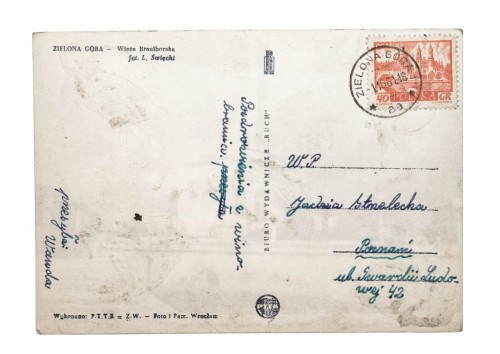 ZIELONA GÓRA — Wieża Braniborska
fot. L. Święcki
Pozdrowienia z wino-
brania przesyła
przesyła
Wanda
BIURO WYDAWNICZE „RUCH"
ZIELONA GÓRA
40 GR
W.P.
Jadzia Strzelecka
Poznań
ul. Gwardii Ludo-
wej 42
Wykonano: P.T.T.K w Z.W. — Foto i Pam. Wrocław